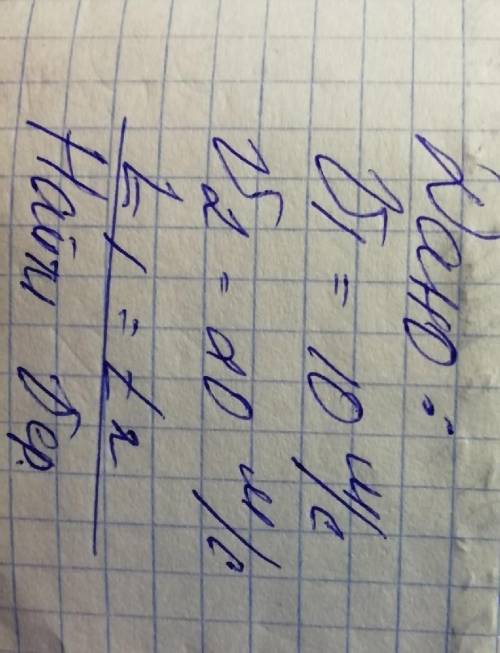 Дано:
υ₁ = 10 м/с
υ₂ = 20 м/с
t₁ = t₂
Найти υср